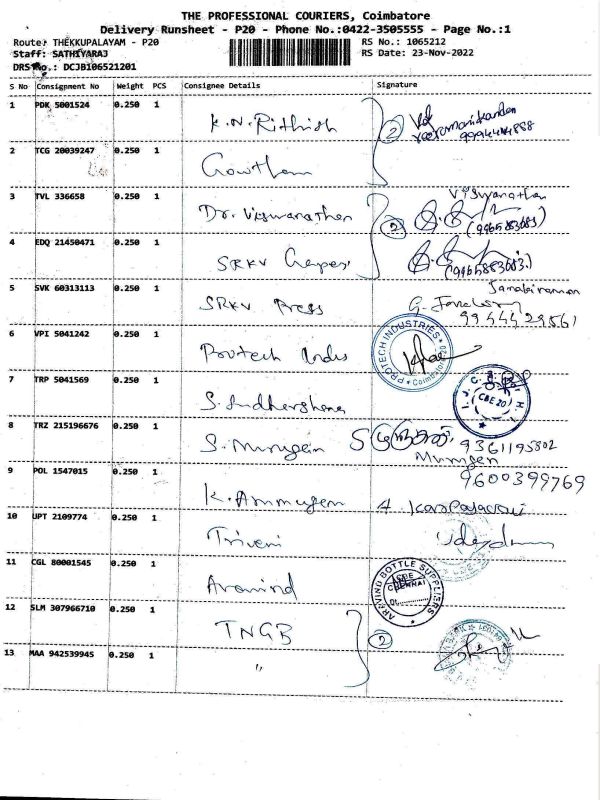 THE PROFESSIONAL COURIERS, Coimbatore
Delivery Runsheet - P20 - Phone No.:0422-3505555 - Page No.:1
Route: THEKKUPALAYAM - P20 RS No.: 1065212
Staff: SATHIYARAJ RS Date: 23-Nov-2022
DRS No.: DCJB106521201
S No Consignment No Weight PCS Consignee Details Signature
1 PDK 5001524 0.250 1 K.N. Rithish 2 9994444888
2 TCG 20039247 0.250 1 Gowtham
3 TVL 336658 0.250 1 Dr. Viswanathan 2 Viswanathan (9965883683)
4 EDQ 21450471 0.250 1 SRKV (9965883683.)
5 SVK 60313113 0.250 1 SRKV Press Janakiraman
9944429561
6 VPI 5041242 0.250 1 Protech Indus PROTECH INDUSTRIES Coimbatore
7 TRP 5041569 0.250 1 S. Sudharshana CBE 20
8 TRZ 215196676 0.250 1 S. Murugan 9361195802
Murugan
9 POL 1547015 0.250 1 K. Ammugam 9600399769
10 UPT 2109774 0.250 1 Triveni
11 CGL 80001545 0.250 1 Aravind ARAVIND BOTTLE SUPPLIERS
12 SLM 307966710 0.250 1 TNGB 2
13 MAA 942539945 0.250 1 "